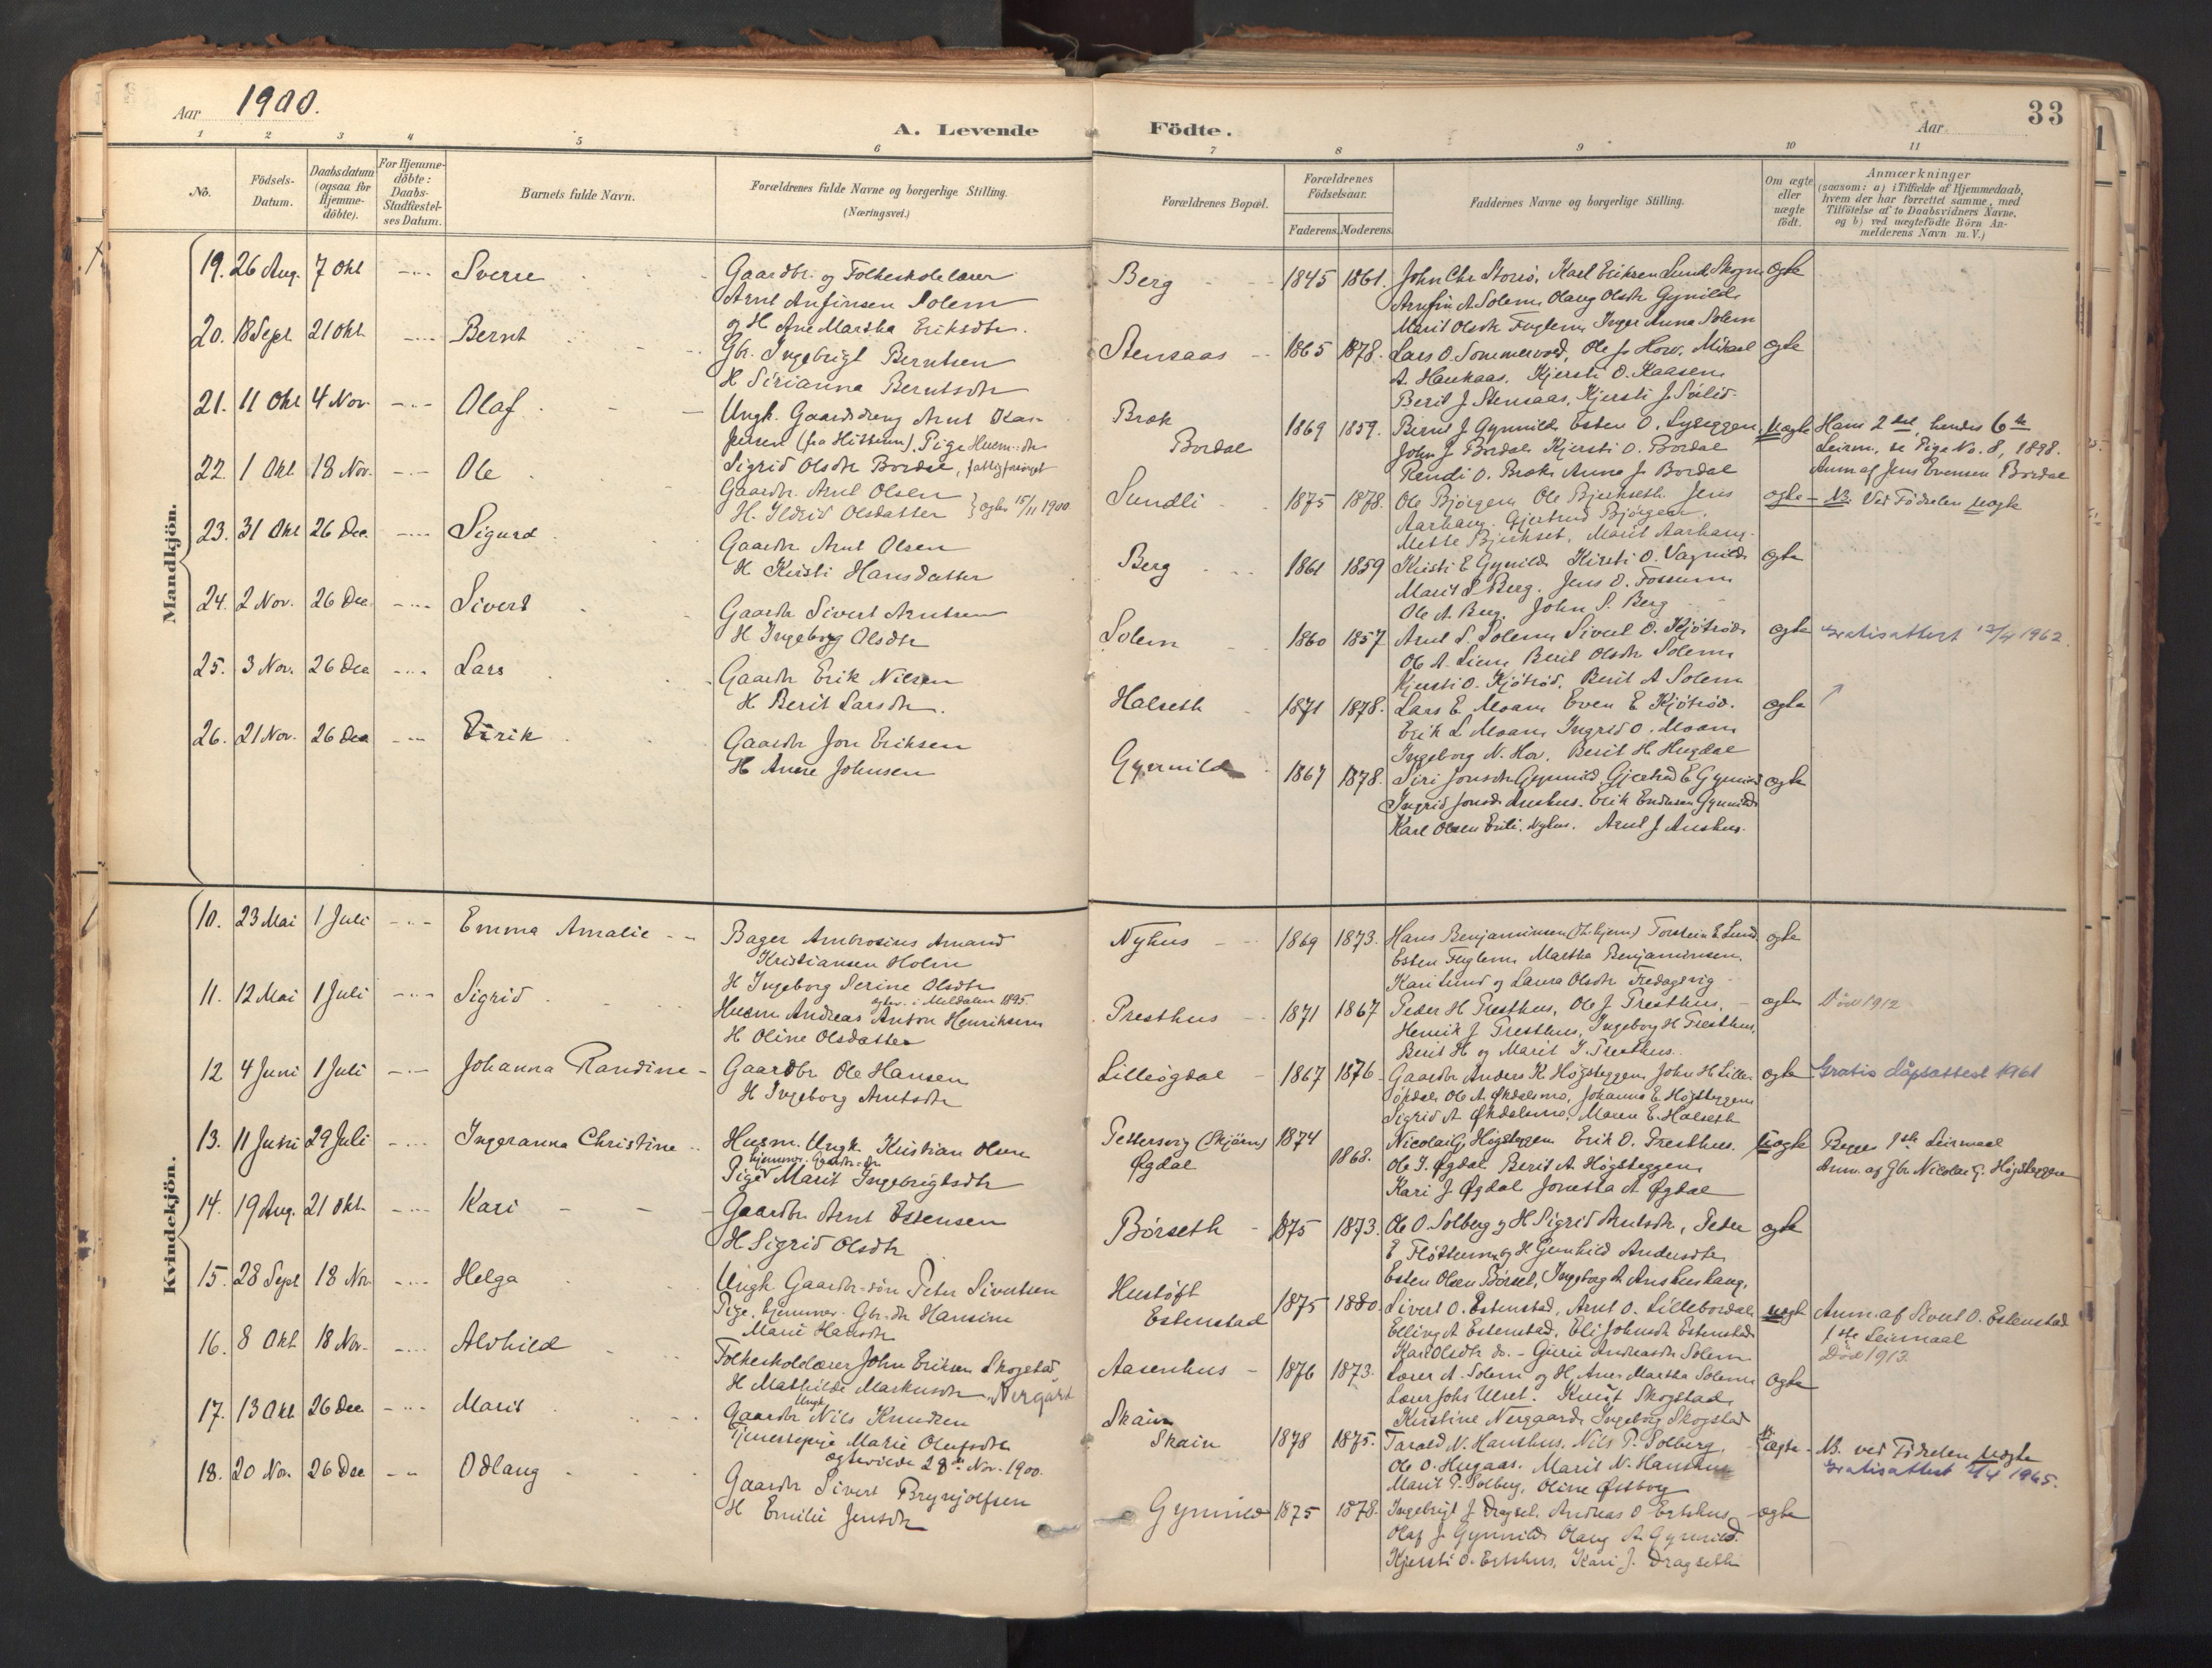 Aar 1900.
A. Levende Födte.
Aar
33
1 2 3 4 5 6 7 8 9 10 11
No.
Födsels-Datum.
Daabsdatum (ogsaa for Hjemme-döbte).
For Hjemme-döbte: Daabs-Stadfæstel-ses Datum.
Barnets fulde Navn.
Forældrenes fulde Navne og borgerlige Stilling.
(Næringsvei.)
Forældrenes Bopæl.
Forældrenes Födselsaar.
Faderens. Moderens.
Faddernes Navne og borgerlige Stilling.
Om ægte eller uægte födt.
Anmærkninger
(saasom: a) i Tilfælde af Hjemmedaab, hvem der har forrettet samme, med Tilföielse af to Daabsvidners Navne, og b) ved uægtefödte Börn An-melderens Navn m. V.)
Mandkjön.
19. 26 Aug. 7 Okt Sverre
Gaardbr. og Folkeskolelærer
Arnt Anfinsen Solem
og H. Ane Martha Eriksdtr.
Berg 1845 1861.
John Chr Storrö, Karl Eriksen Lund Skogn
Arnfin A Solem, Olaug Olsdtr Gynild,
Marit Olsdtr Fuglem, Inger Anna Solem
ægte
20. 18 Sept 21 Okt. Bernt
Gbr. Ingebrigt Berntsen
H. Sirianna Berntsdtr
Stensaas 1865 1878.
Lars O. Sommervold, Ole J. Hov, Mikael
A. Haukaas. Kjersti O. Kaasen,
Berit J. Stensaas, Kjersti J.
ægte
21. 11 Okt 4 Nov. Olaf
Ungk. Gaardsdreng Arnt
(fra Hitteren), Pige Husm:dtr
Sigrid Olsdtr Bordal,
Bræk
Bordal 1869 1859.
Bernt J Gynnild Esten O. Lyseggen,
John J Bordal, Kjersti O. Bordal
Rendi O. Bræk, Anna J. Bordal
uægte
Hans 2det, hendes 6te
Leirm., se Pige No. 8, 1898.
Anm af Jens Evensen Bordal
22. 1 Okt 18 Nov. Ole
Gaardbr. Arnt Olsen
H. Ildrid Olsdatter } ægtev 15/11 1900
Sundli 1875 1878.
Ole Bjørgen, Ole Bjerkset. Jens
Aarhaug. Gjertrud Bjørgen,
Mette Bjerkset, Marit Aarhaug.
ægte - NB. Ved Fødselen uægte
23. 31 Okt 26 Dec. Sigurd
Gaardbr Arnt Olsen
H. Kirsti Hansdatter
Berg 1861 1859
Kirsti E Gynild, Kirsti O. Vagnild,
Marit S Berg. Jens O. Fossum
Ole A. Berg, John S. Berg
ægte
24. 2 Nov. 26 Dec. Sivert
Gaardbr Sivert Arntsen
H Ingeborg Olsdtr
Solem 1860 1857
Arnt S. Solem, Sivert O. Kjøtrød,
Ole A. Liem, Berit Olsdtr Solem
Kjersti O. Kjøtrød. Berit A Solem
ægte Gratisattest 12/4 1962
25. 3 Nov. 26 Dec Lars
Gaardbr Erik Nilsen
H. Berit Larsdtr.
Halseth 1871 1878.
Lars E. Moan, Even E Kjøtrød.
Erik L Moan, Ingrid O. Moan
Ingeborg N. Hov. Berit H. Hugdal
ægte
26. 21 Nov. 26 Dec Eirik
Gaardbr Jon Eriksen
H. Anne Johnsen
Gynnild 1867 1878.
Siri Jonsdtr Gynnild, Gjertrud E Gynnild
Ingrid Jonsdtr Aushus. Erik Endresen Gynnild
Karl Olsen Enli. Nyhus. Arnt J Aushus.
ægte
Kvindekjön.
10. 23 Mai 1 Juli Emma Amalie
Bager Ambrosius Amand
Kristiansen Holm
H Ingeborg Serine Olsdtr
ægtev. i Meldalen 1895.
Nyhus 1869 1873.
Hans Benjaminsen (Th.hjem) Torstein E Lund
Esten Fuglem, Martha Benjaminsen,
Kari Lund og Laura Olsdtr Fredagsvig
ægte
11. 12 Mai 1 Juli Sigrid
Husm. Andreas Anton Henriksen
H Oline Olsdatter
Presthus 1871 1867
Peder H Presthus, Ole J. Presthus,
Henrik J Presthus, Ingeborg H Presthus,
Berit H. og Marit J. Presthus.
ægte Död 1912
12 4 Juni 1 Juli Johanna Randine
Gaardbr Ole Hansen
H Ingeborg Arntsdtr
Lilleøgdal 1867 1876
Gaardbr Anders K Høgsteggen, John H Lille-
øgdal, Ole A. Økdalsmo, Johanna E. Høgsteggen
Sigrid A Økdalsmo, Maren E. Halseth
ægte Gratis dåpsattest 1961
13. 11 Juni 29 Juli Ingeranna Christine
Husm. Ungk. Kristian Olsen
hjemmev. Gaardbr-dtr
Pige Marit Ingebrigtsdtr
Pettersvig (Skjörn) 1874
Øgdal 1868.
Nicolai G. Høgsteggen Erik O. Presthus.
Ole I. Øgdal. Berit A. Høgsteggen,
Kari J. Øgdal, Jonetta A Øgdal
uægte
Begges 1ste Leiermaal
Anm. af Gbr Nicolai G. Høgsteggen
14. 19 Aug. 21 Okt. Kari
Gaardbr Arnt Estensen
H Sigrid Olsdtr
Børseth 1875 1873.
Ole O. Solberg og H. Sigrid Arntsdtr, Peder
E. Fløttum og H Gunhild Andersdtr,
Esten Olsen Børset, Ingeborg A Aushushaug,
ægte
15. 28 Sept 18 Nov Helga
Ungk. Gaardbr-søn Peter Sivertsen
Pige, hjemmev. Gbr.dtr Hansine
Marie Hansdtr
Hustøft
Estenstad 1875 1880.
Sivert O. Estenstad, Arnt O. Lillebordal
Elling A Estenstad, Eli Johnsdtr Estenstad
Kari Olsdtr do. - Gurie Andreasdtr Solem
uægte
Anm. af Sivert O. Estenstad
1ste Leiermaal
Död 1913.
16. 8 Okt 18 Nov. Alvhild
Folkeskolelærer John Eriksen Skogstad
H Mathilde Markusdtr "Nergård
Aasenhus 1876 1873.
Lærer A. Solem og H. Ane Martha Solem
Lærer Johs Ulset. Knut Skogstad
Kirstine Nergaard, Ingeborg Skogstad
ægte
17. 13 Okt. 26 Dec Marit
Ungk.
Gaardbr Nils Knudsen
Tjenestepige Marie Olufsdtr
ægteviede 28de Nov. 1900.
Skain
Skain 1878 1875.
Tarald N. Haushus. Nils P. Solberg,
Ole O. Hugaas. Marit N. Haushus
Marit P. Solberg, Oline Østborg
ægte - NB. ved Fødselen uægte
Gratisattest 2/4 1965.
18. 20 Nov. 26 Dec Odlaug
Gaardbr Sivert Brynjolfsen
H Emilie Jensdtr
Gynnild 1875 1878.
Ingebrigt J Dragset, Andreas O Estshus
Olaf J Gynnild, Olaug A Gynnild.
Kjersti O. Estshus, Kari J. Dragseth
ægte